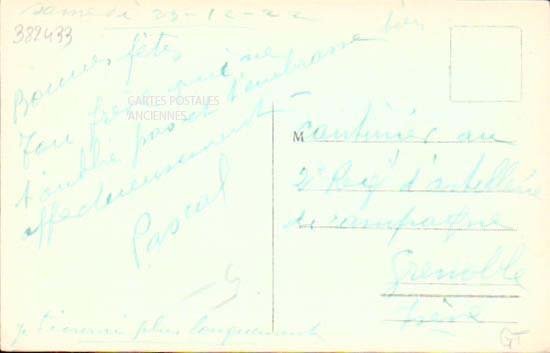 samedi 23-12-22
382433
Bonnes fêtes
Ton frère qui ne
t'oublie pas et t'embrasse bien
affectueusement
Pascal
je t'écrirai plus longuement
CARTES POSTALES
ANCIENNES
M Cantinier au
2e Regt d'artillerie
de campagne
Grenoble
Isère
GT